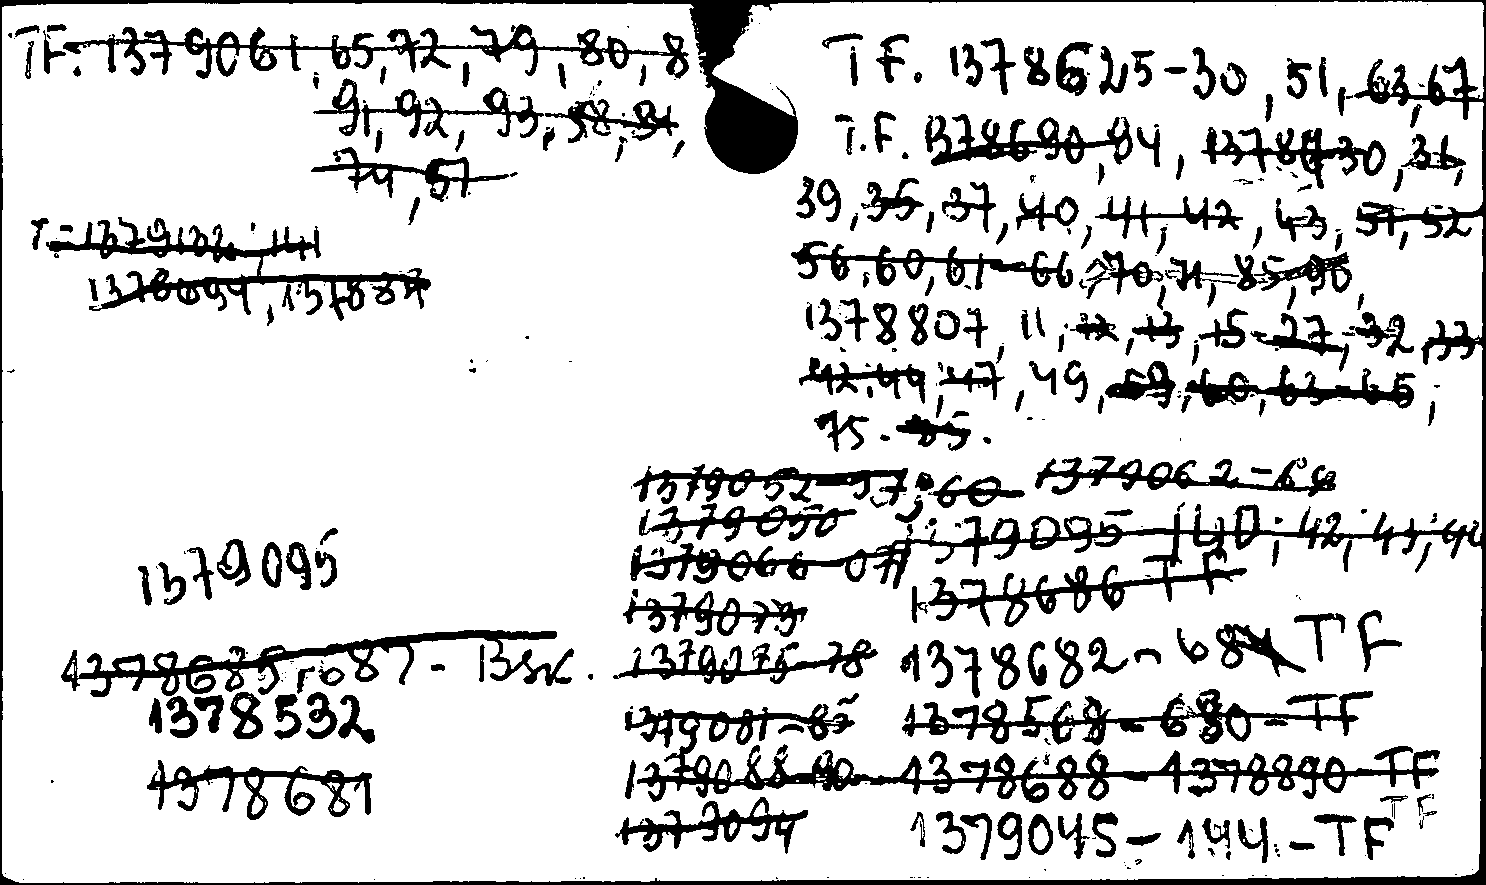 TF. 1379061, 65, 72, 79, 80, 8
91, 92, 93, 58, 51,
74, 57
T-1379132, 141
1378694, 137887
TF. 1378625-30, 51, 63, 67
T.F. 1378690, 94, 1378730, 31,
39, 35, 37, 40, 41, 42, 43, 51, 52
56, 60, 61-66, 70, 71, 85, 90,
1378807, 11, 12, 13, 15-27, 32, 33
42, 44, 47, 49, 59, 60, 63-65,
75.
1379052-57, 60 1379062-64
1379050 1379095 140, 42, 43, 44
1379066 07 1378686 TF
1379095
1379073
1378685, 687- 1379075-78 1378682-684 TF
1378532 1379081-85 1378568-680-TF
1378681 1379088-90 1378688-1378890-TF
TF
1379094 1379045-144-TF